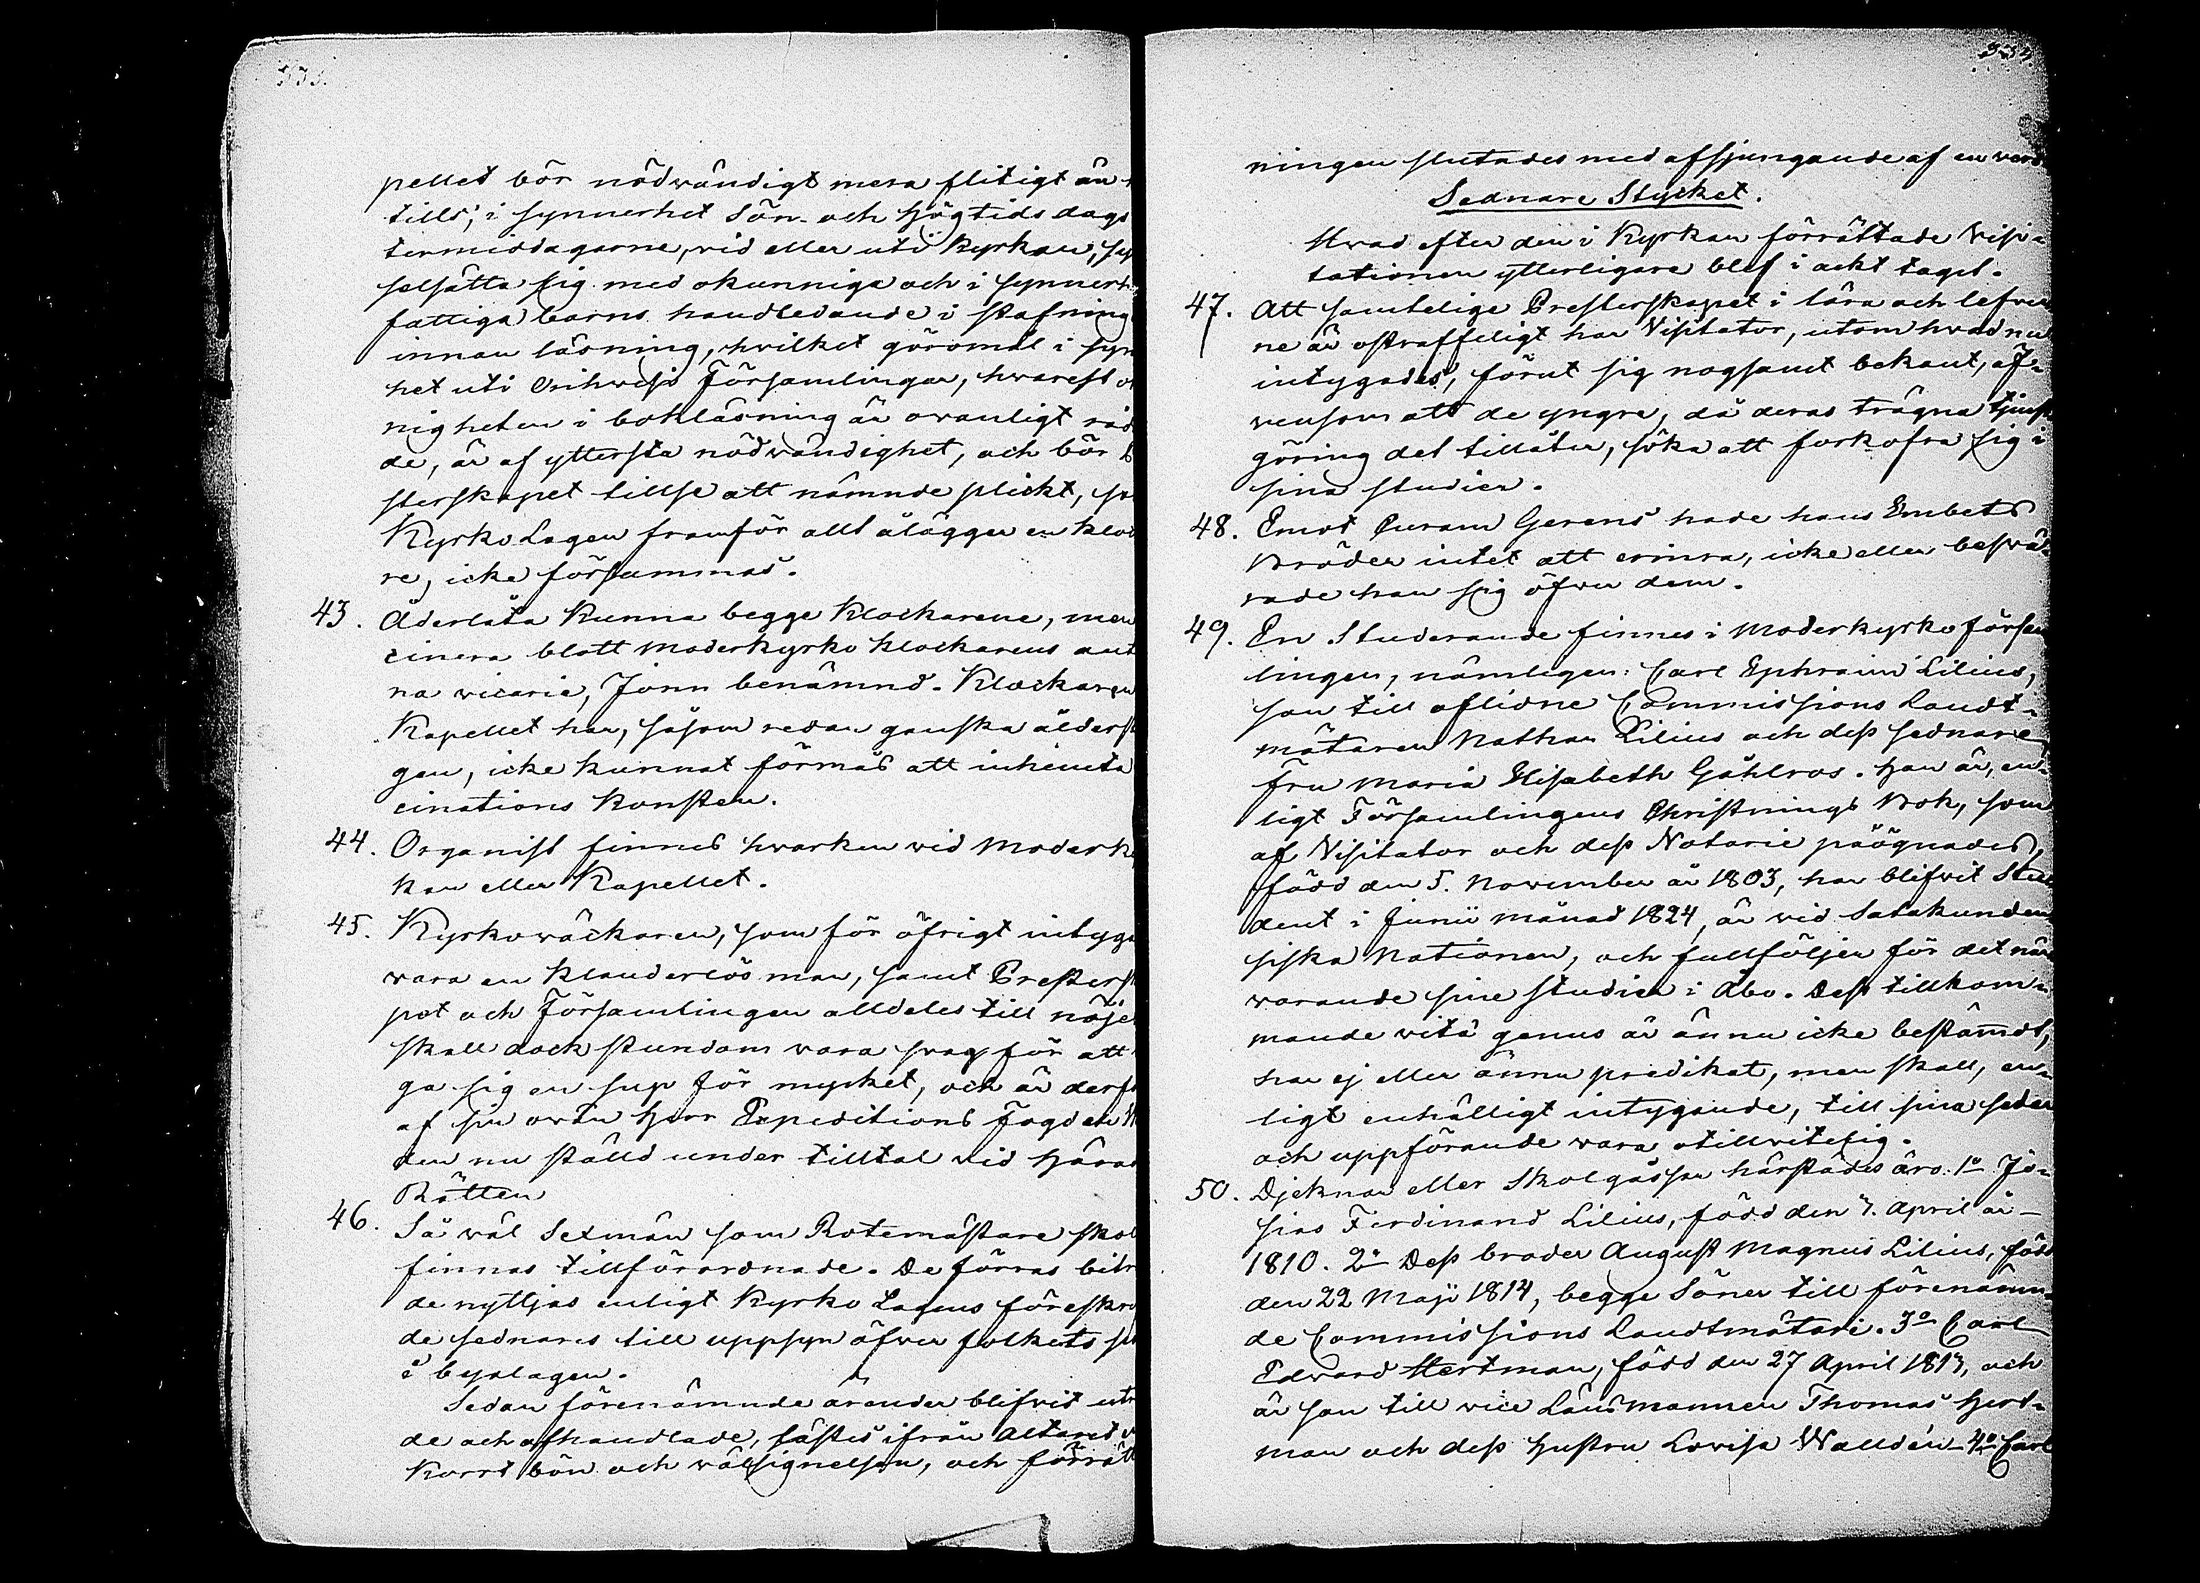 533.
pellet bör nödvändigt mera flitigt än
tills, i synnerhet Sön- och Högtids dags
termiddagarne, vid eller uti Kyrkan, sys
selsätta sig med okunniga och i synnerh
fattiga barns handledande i stafning
innan läsning, hvilket göromål i syn
het uti Församlingen, hwarest o
nigheten i bokläsning är ovanligt råd
de, är af yttersta nödvändighet, och bör
sterskapet tillse att nämnde plickt, so
Kyrko Lagen framför allt ålägger en kloc
re, icke försummas.
43. Åderlåta kunna begge Klockarene, men
cinera blott moderkyrko klockarens ant
na vicarie, Jonn benämnd. Klockaren
Kapellet har, såsom redan ganska ålderst
gen, icke kunnat förmås att inhämta
cinations konsten.
44. Organist finnes hwarken vid moderk
kan eller Kapellet.
45. Kyrkoväckaren, som för öfrigt intyga
wara en klanderlös man, samt Prestersk
pet och Församlingen alldeles till nöje
skall dock stundom vara svag för att
ga sig en sup för mycket, och är derf
af sin ovän Herr Expeditions Fogden W
den nu ställd under tilltal vid Härad
Rätten
46. Så väl Sexmän som Rotemästare skol
finnas tillförordnade. De förras bitr
de nyttjas enligt Kyrko Lagens föreskr
de sednares till uppsyn öfver folkets se
i byalagen.
Sedan förenämnde ärender blifvit utr
de och afhandlade, lästes ifrån Altaret
Korrt bön och välsignelsen, och förrätt
534.
ningen slutades med afsjungande af en vers
Sednare Stycket.
Hvad efter den i Kyrkan förrättade Visi-
tationen ytterligare blef i ackt taget.
47. Att samtelige Presterskapet i lära och lefver
ne är ostraffeligt har Visitator, utom hvad nu
intygades, förut sig nogsamt bekant, äf-
vensom att de yngre, då deras trägna tjenst
göring det tillåter, söka att förkofra sig i
sina studier.
48. Emot Curam Gerens hade hans Embets
Bröder intet att erinra, icke eller besvä-
rade han sig öfver dem.
49. En Studerande finnes i moderkyrko försam
lingen, nämligen: Carl Ephraim Lilius,
son till aflidne Commissions Landt-
mätaren Nathan Lilius och dess sednare
fru Maria Elisabeth Gåhlroos. Han är, en-
ligt Församlingens Christnings Bok, som
af Visitator och dess Notarie påögnades,
född den 5. November år 1803, har blifvit Stu
dent i Junii månad 1824, är vid Satakunden
siska Nationen, och fullföljer för det när
warande sine studier i Åbo. Dess tillkom-
mande vitæ genus är ännu icke bestämdt,
har ej eller ännu predikat, men skall, en-
ligt enhälligt intygande, till sina seder
och uppförande vara otillvitelig.
50. Djeknar eller Skolgåssar härstädes äro. 1o Jo-
sias Ferdinand Lilius, född den 7. April år
1810. 2o Dess broder August Magnus Lilius, född
den 22 Maji 1814, begge Söner till förenämn-
de Commissions Landtmätare. 3o Carl
Edvard Hertman, född den 27 April 1813, och
är son till vice Länsmannen Thomas Hert-
man och dess hustru Lovisa Walldén 4o Carl